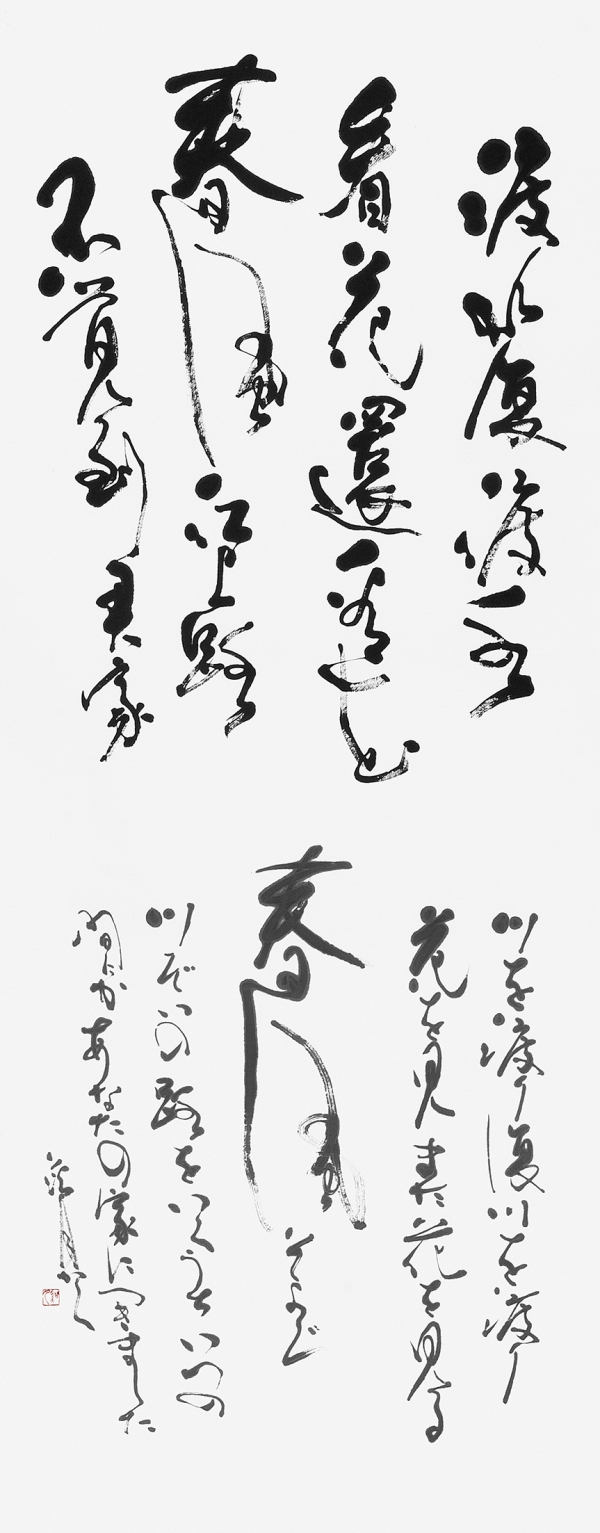 渡水復渡水
看花還看花
春風江上路
不覚到君家
川を渡り復川を渡り
花を見また花を見る
春風そよぐ
川ぞいの路をいくうちいつの
間にかあなたの家につきました